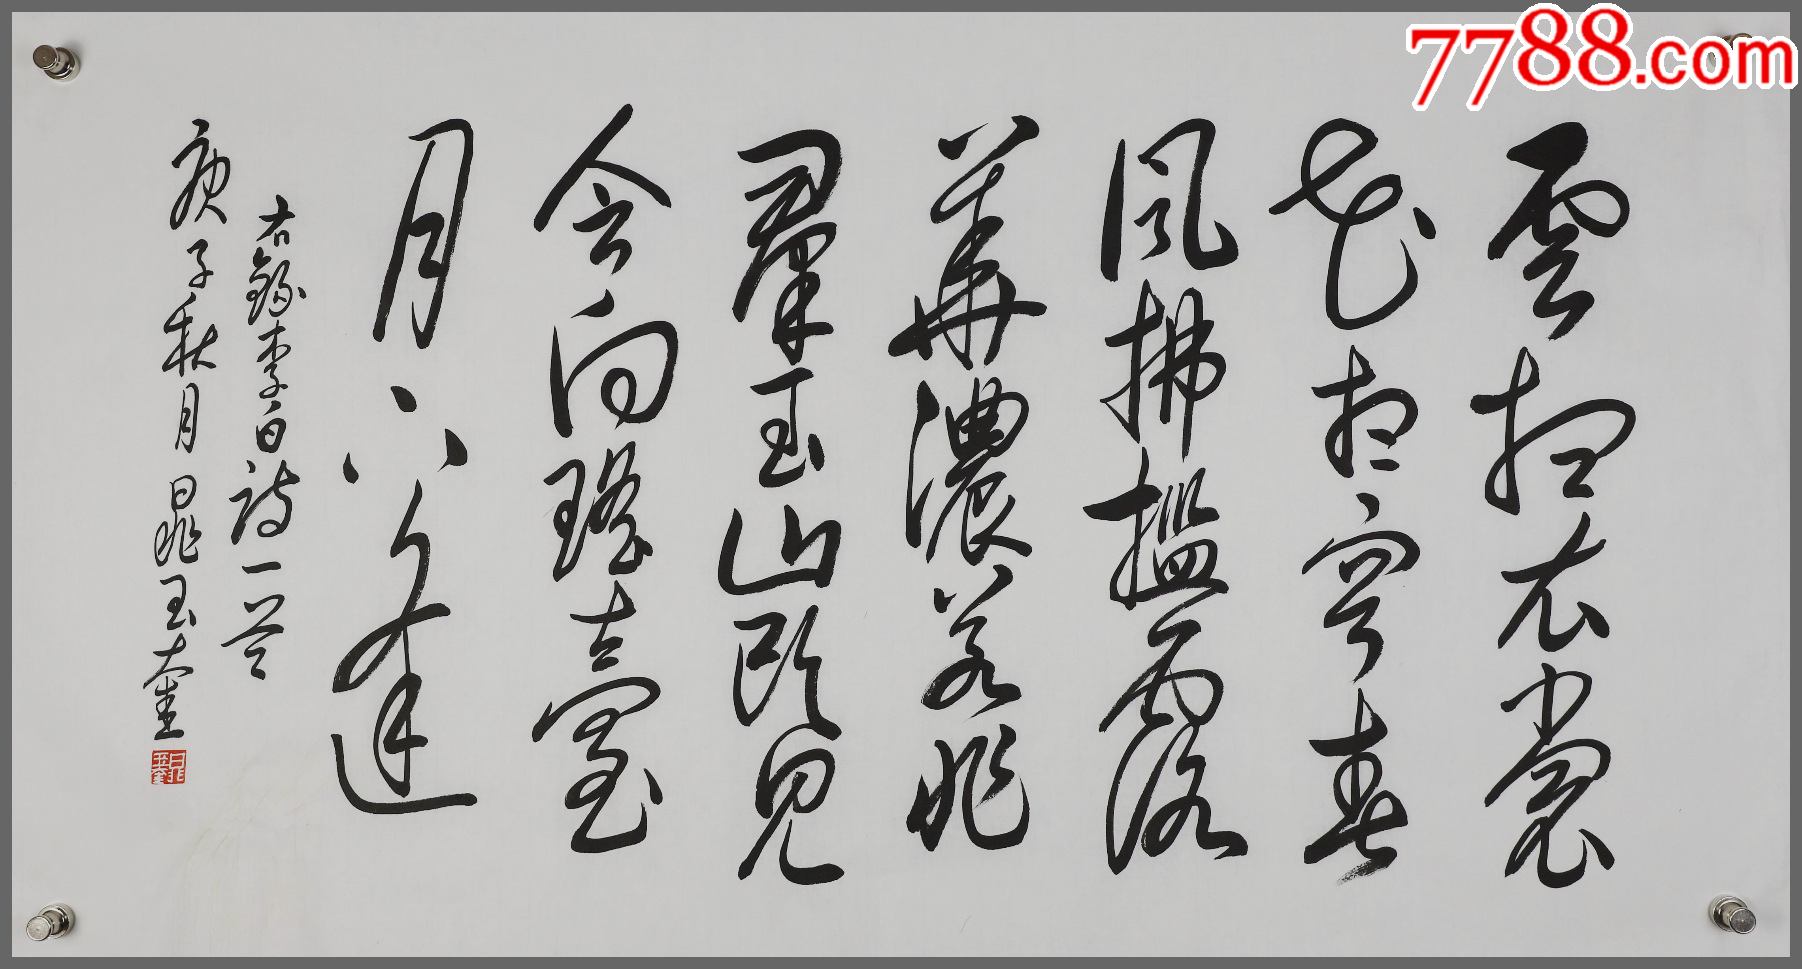 雲想衣裳
花想容春
風拂檻露
華濃若非
羣玉山頭見
會向瑤臺
月下逢
右錄李白詩一首
庚子秋月晁玉奎
晁玉奎
7788.com